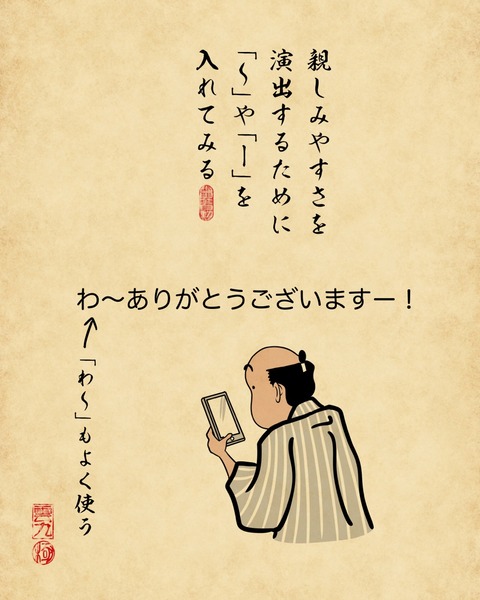 親しみやすさを
演出するために
「〜」や「ー」を
入れてみる
わ〜ありがとうございますー！
「わ〜」もよく使う